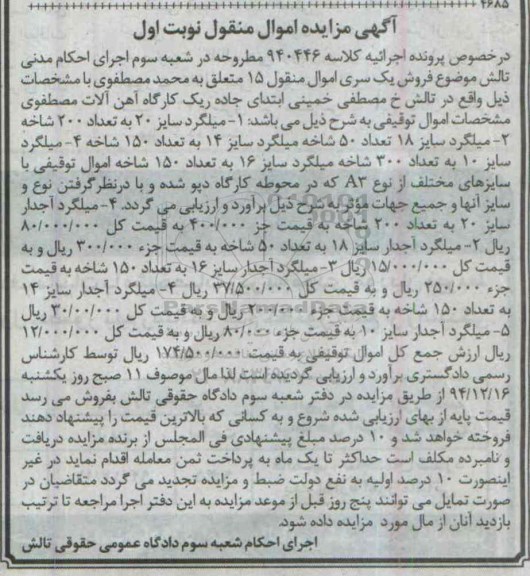 ۴۶۸۵
آگهی مزایده اموال منقول نوبت اول
درخصوص پرونده اجرائیه کلاسه ۹۴۰۴۴۶ مطروحه در شعبه سوم اجرای احکام مدنی
تالش موضوع فروش یک سری اموال منقول ۱۵ متعلق به محمد مصطفوی با مشخصات
ذیل واقع در تالش خ مصطفی خمینی ابتدای جاده ریک کارگاه آهن آلات مصطفوی
مشخصات اموال توقیفی به شرح ذیل می باشد: ۱- میلگرد سایز ۲۰ به تعداد ۲۰۰ شاخه
۲- میلگرد سایز ۱۸ تعداد ۵۰ شاخه میلگرد سایز ۱۴ به تعداد ۱۵۰ شاخه ۴- میلگرد
سایز ۱۰ به تعداد ۳۰۰ شاخه میلگرد سایز ۱۶ به تعداد ۱۵۰ شاخه اموال توقیفی با
سایزهای مختلف از نوع A۳ که در محوطه کارگاه دپو شده و با درنظرگرفتن نوع و
سایز آنها و جمیع جهات مؤثر به شرح ذیل برآورد و ارزیابی می گردد. ۴- میلگرد آجدار
سایز ۲۰ به تعداد ۲۰۰ شاخه به قیمت جز ۴۰۰/۰۰۰ به قیمت کل ۸۰/۰۰۰/۰۰۰
ریال ۲- میلگرد آجدار سایز ۱۸ به تعداد ۵۰ شاخه به قیمت جزء ۳۰۰/۰۰۰ ریال و به
قیمت کل ۱۵/۰۰۰/۰۰۰ ریال ۳- میلگرد آجدار سایز ۱۶ به تعداد ۱۵۰ شاخه به قیمت
جزء ۲۵۰/۰۰۰ ریال و به قیمت کل ۳۷/۵۰۰/۰۰۰ ریال ۴- میلگرد آجدار سایز ۱۴
به تعداد ۱۵۰ شاخه به قیمت جزء ۲۰۰/۰۰۰ ریال و به قیمت کل ۳۰/۰۰/۰۰۰ ریال
۵- میلگرد آجدار سایز ۱۰ به قیمت جزء ۸۰/۰۰۰ ریال و به قیمت کل ۱۲/۰۰۰/۰۰۰
ریال ارزش جمع کل اموال توقیفی به قیمت ۱۷۴/۵۰۰/۰۰۰ ریال توسط کارشناس
رسمی دادگستری برآورد و ارزیابی گردیده است لذا مال موصوف ۱۱ صبح روز یکشنبه
۹۴/۱۲/۱۶ از طریق مزایده در دفتر شعبه سوم دادگاه حقوقی تالش بفروش می رسد
قیمت پایه از بهای ارزیابی شده شروع و به کسانی که بالاترین قیمت را پیشنهاد دهند
فروخته خواهد شد و ۱۰ درصد مبلغ پیشنهادی فی المجلس از برنده مزایده دریافت
و نامبرده مکلف است حداکثر تا یک ماه به پرداخت ثمن معامله اقدام نماید در غیر
اینصورت ۱۰ درصد اولیه به نفع دولت ضبط و مزایده تجدید می گردد متقاضیان در
صورت تمایل می توانند پنج روز قبل از موعد مزایده به این دفتر اجرا مراجعه تا ترتیب
بازدید آنان از مال مورد مزایده داده شود.
اجرای احکام شعبه سوم دادگاه عمومی حقوقی تالش